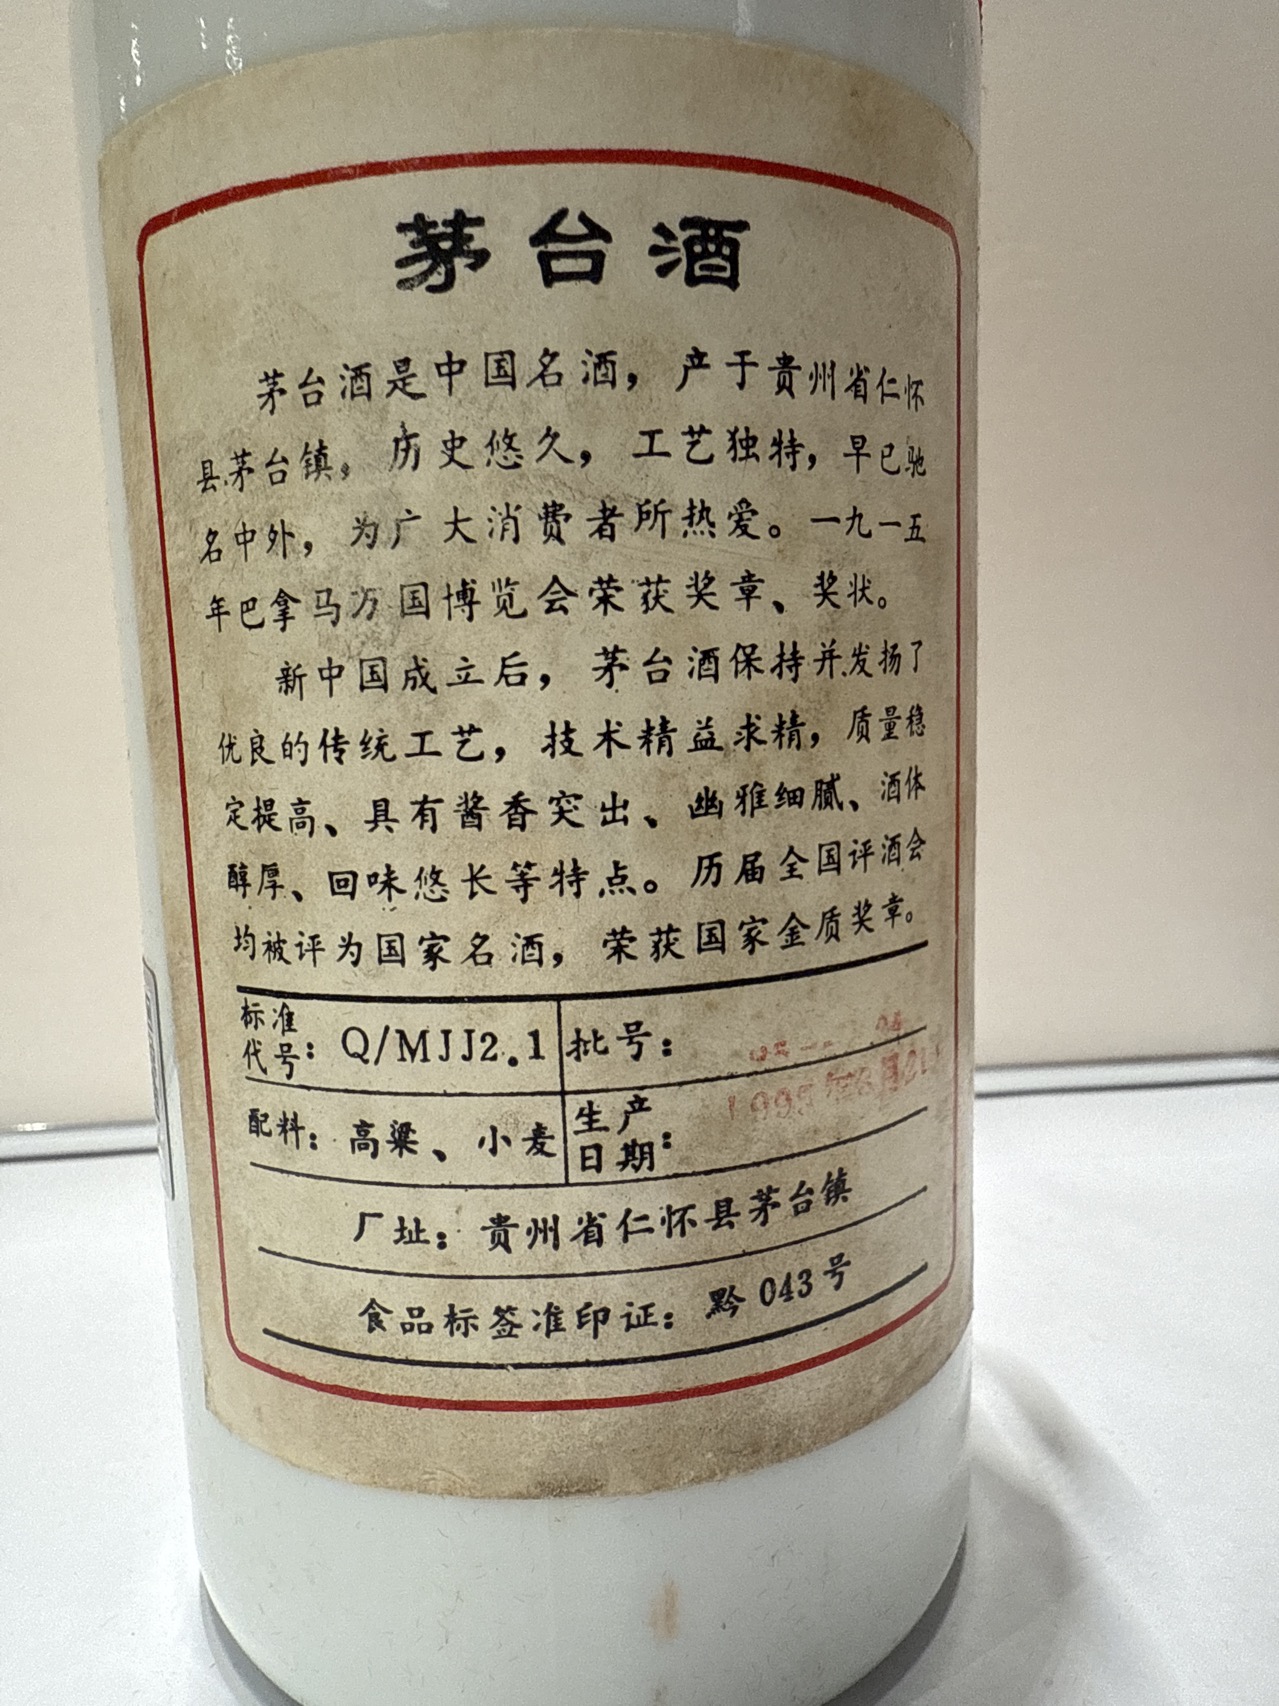 茅台酒
茅台酒是中国名酒，产于贵州省仁怀
县茅台镇，历史悠久，工艺独特，早已驰
名中外，为广大消费者所热爱。一九一五
年巴拿马万国博览会荣获奖章、奖状。
新中国成立后，茅台酒保持并发扬了
优良的传统工艺，技术精益求精，质量稳
定提高、具有酱香突出、幽雅细腻、酒体
醇厚、回味悠长等特点。历届全国评酒会
均被评为国家名酒，荣获国家金质奖章。
标准代号：Q/MJJ2.1 批号：
配料：高粱、小麦 生产日期：1995年
厂址：贵州省仁怀县茅台镇
食品标签准印证：黔043号